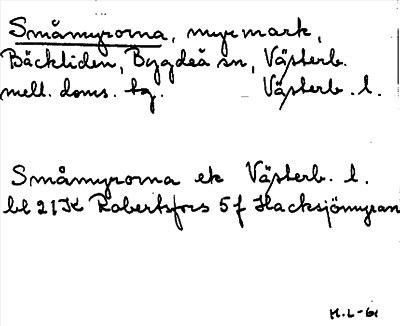 Småmyrorna, myrmark,
Bäckliden, Bygdeå sn, Västerb.
mell. doms. tg. Västerb. l.
Småmyrorna ek Västerb. l.
bl 21K Robertsfors 5f Hacksjömyran
H.L-61